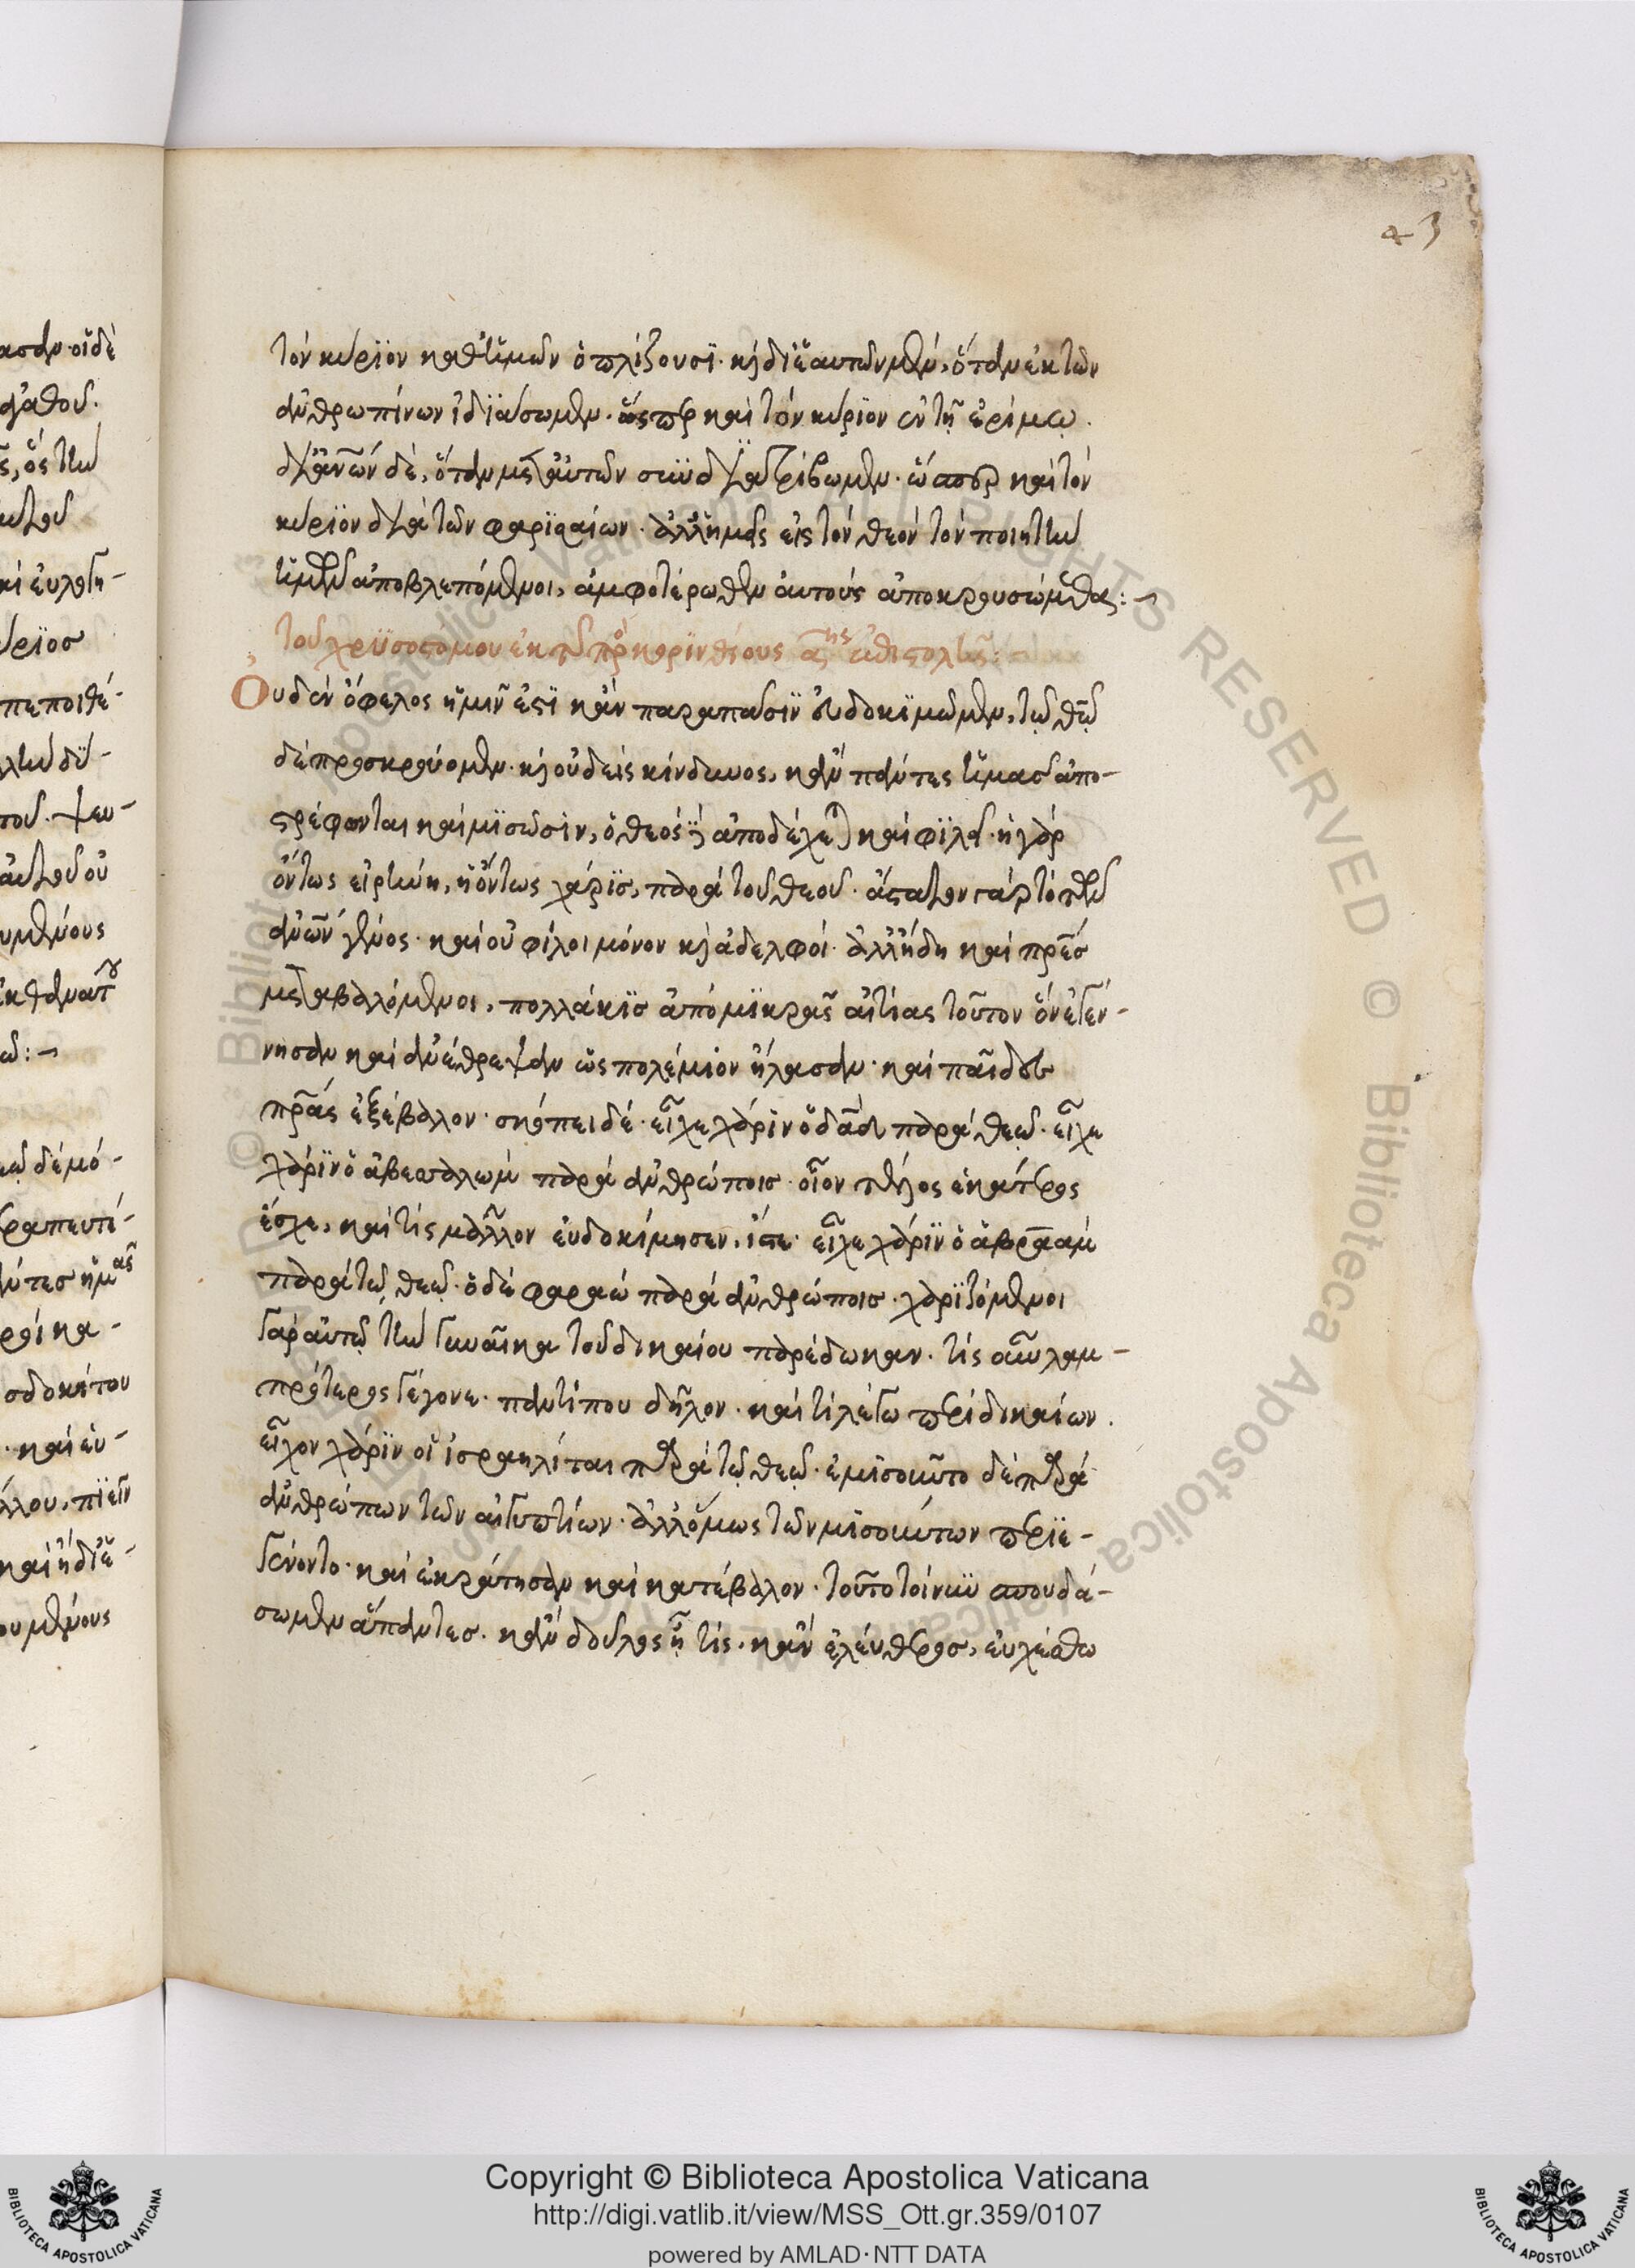 43
τὸν κύριον καθ' ἡμῶν ὁπλίζουσι· κ(αὶ) δι' ἑαυτῶν μὲν, ὅταν ἐκ τῶν
ἀνθρωπίνων ἰδιάσωμεν· ὥσπερ καὶ τὸν κύριον ἐν τῇ ἐρήμῳ.
δι' ἀνῶν δὲ, ὅταν μετ' αὐτῶν συνδιατρίβωμεν· ὥσπερ καὶ τὸν
κύριον διὰ τῶν φαρισαίων· ἀλλ' ἡμεῖς εἰς τὸν θεὸν τὸν ποιητὴν
ἡμῶν ἀποβλεπόμενοι, ἀμφοτέρωθεν αὐτοὺς ἀποκρουσώμεθα:-
τοῦ χρυσοστόμου ἐκ τῆς πρὸς κορινθίους α^ης ἐπιστολῆς:
Οὐδὲν ὄφελος ἡμῖν ἐστὶ κἂν παρὰ πᾶσιν εὐδοκιμῶμεν, τῷ θῷ
δὲ προσκρούομεν· κ(αὶ) οὐδεὶς κίνδυνος, κἂν πάντες ἡμᾶς ἀπο-
στρέφονται καὶ μισῶσιν, ὁ θεὸς δὲ ἀποδέχεται καὶ φιλεῖ· ἡ γὰρ
ὄντως εἰρήνη, ἡ ὄντως χάρις, παρὰ τοῦ θεοῦ· ἄστατον γὰρ τὸ τῶν
ἀνῶν γένος· καὶ οὐ φίλοι μόνον κ(αὶ) ἀδελφοὶ· ἀλλ' ἤδη καὶ πρες
μεταβαλόμενοι, πολλάκις ἀπὸ μικρᾶς αἰτίας τοῦτον ὃν ἐγέν-
νησαν καὶ ἀνέθρεψαν ὡς πολέμιον ἤλασαν· καὶ παῖδες
πρας ἐξέβαλον· σκόπει δέ· εἶχε χάριν ὁ δαδ παρὰ θεῷ· εἶχε
χάριν ὁ ἀβεσαλὼμ παρὰ ἀνθρώποις· οἷον τέλος ἑκάτερος
ἔσχε, καὶ τίς μᾶλλον εὐδοκίμησεν, ἴστε· εἶχε χάριν ὁ ἀβραὰμ
παρὰ τῷ θεῷ· ὁ δὲ φαραὼ παρὰ ἀνθρώποις· χαριζόμενοι
γὰρ αὐτῷ τὴν γυναῖκα τοῦ δικαίου παρέδωκαν· τίς οὖν λαμ-
πρότερος γέγονε· παντί που δῆλον· καὶ τί λέγω περὶ δικαίων.
εἶχον χάριν οἱ ἰσραηλίται παρὰ τῷ θεῷ· ἐμισοῦντο δὲ παρὰ
ἀνθρώπων τῶν αἰγυπτίων· ἀλλ' ὅμως τῶν μισούντων περιε-
γένοντο· καὶ ἐκράτησαν καὶ κατέβαλον· τοῦτο τοίνυν σπουδά-
σωμεν ἅπαντες· κἂν δοῦλος ᾖ τίς· κἂν ἐλεύθερος, εὐχέσθω
Copyright © Biblioteca Apostolica Vaticana
http://digi.vatlib.it/view/MSS_Ott.gr.359/0107
powered by AMLAD·NTT DATA